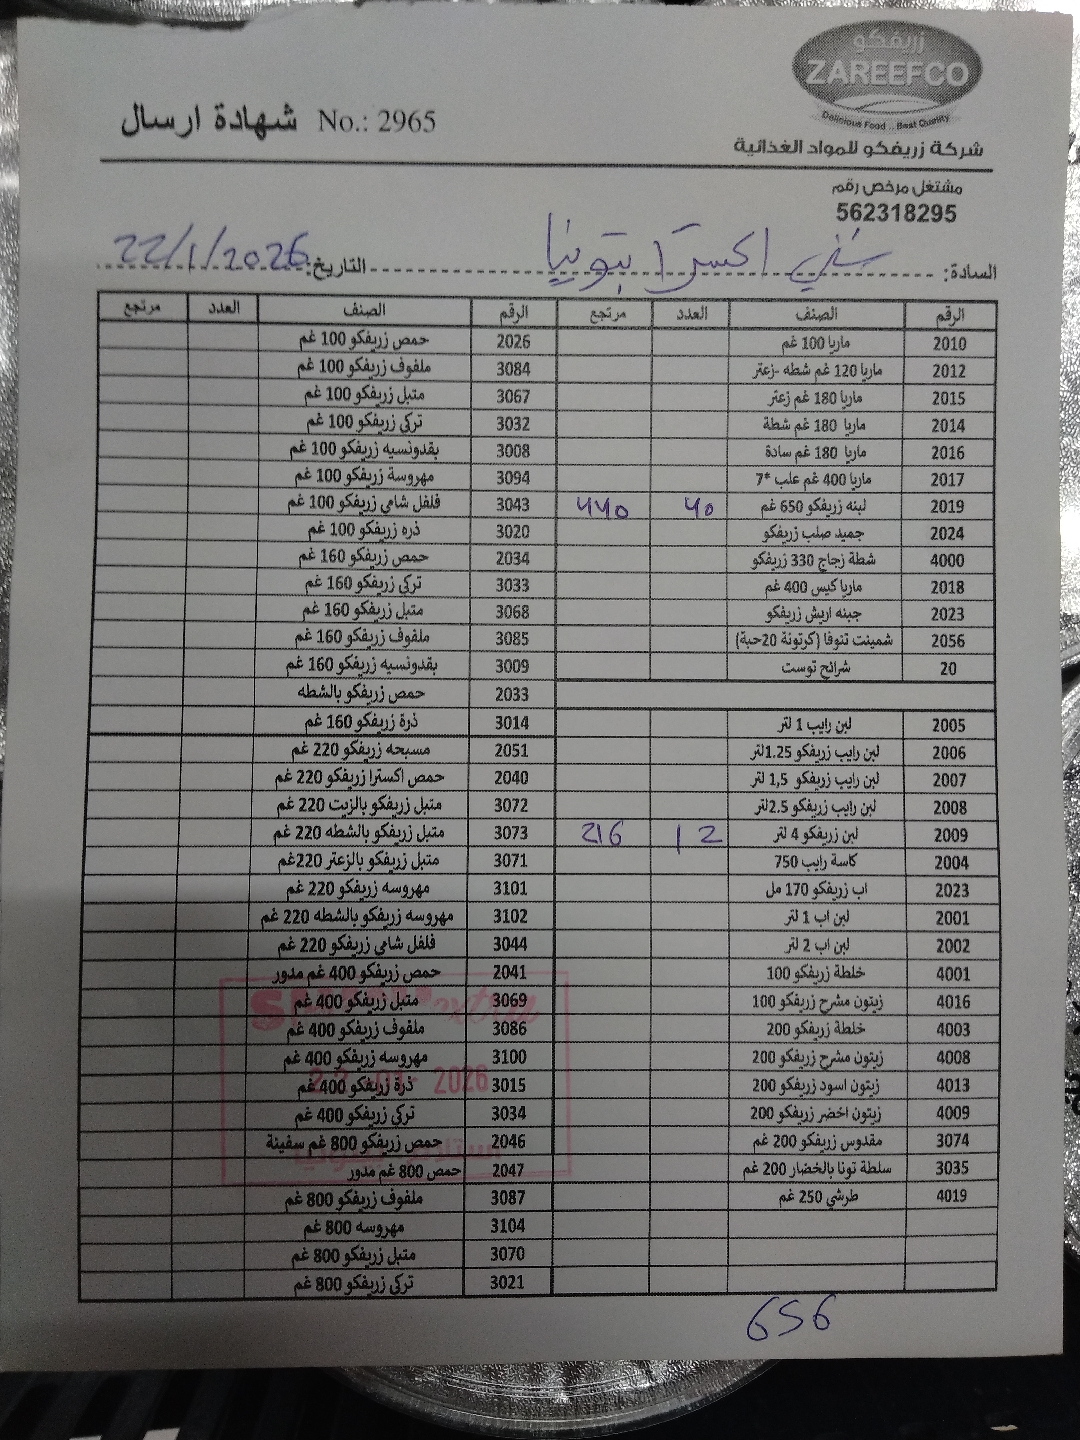 زريفكو
ZAREEFCO
Delicious Food .. Best Quality
شركة زريفكو للمواد الغذائية
شهادة ارسال No.: 2965
مشتغل مرخص رقم
562318295
السادة: اكسترا التاريخ: 22/1/2026
الرقم الصنف العدد مرتجع الرقم الصنف العدد مرتجع
2010 ماريا 100 غم 2026 حمص زريفكو 100 غم
2012 ماريا 120 غم شطه -زعتر 3084 ملفوف زريفكو 100 غم
2015 ماريا 180 غم زعتر 3067 متبل زريفكو 100 غم
2014 ماريا 180 غم شطة 3032 تركي زريفكو 100 غم
2016 ماريا 180 غم سادة 3008 بقدونسيه زريفكو 100 غم
2017 ماريا 400 غم علب *7 3094 مهروسة زريفكو 100 غم
2019 لبنه زريفكو 650 غم 40 440 3043 فلفل شامي زريفكو 100 غم
2024 جميد صلب زريفكو 3020 ذره زريفكو 100 غم
4000 شطة زجاج 330 زريفكو 2034 حمص زريفكو 160 غم
2018 ماريا كيس 400 غم 3033 تركي زريفكو 160 غم
2023 جبنه اريش زريفكو 3068 متبل زريفكو 160 غم
2056 شمينت تنوفا (كرتونة 20حبة) 3085 ملفوف زريفكو 160 غم
20 شرائح توست 3009 بقدونسيه زريفكو 160 غم
2033 حمص زريفكو بالشطه
2005 لبن رايب 1 لتر 3014 ذرة زريفكو 160 غم
2006 لبن رايب زريفكو 1.25لتر 2051 مسبحه زريفكو 220 غم
2007 لبن رايب زريفكو 1,5 لتر 2040 حمص اكسترا زريفكو 220 غم
2008 لبن رايب زريفكو 2.5لتر 3072 متبل زريفكو بالزيت 220 غم
2009 لبن زريفكو 4 لتر 12 216 3073 متبل زريفكو بالشطه 220 غم
2004 كاسة رايب 750 3071 متبل زريفكو بالزعتر 220غم
2023 اب زريفكو 170 مل 3101 مهروسه زريفكو 220 غم
2001 لبن اب 1 لتر 3102 مهروسه زريفكو بالشطه 220 غم
2002 لبن اب 2 لتر 3044 فلفل شامي زريفكو 220 غم
4001 خلطة زريفكو 100 2041 حمص زريفكو 400 غم مدور
4016 زيتون مشرح زريفكو 100 3069 متبل زريفكو 400 غم
4003 خلطة زريفكو 200 3086 ملفوف زريفكو 400 غم
4008 زيتون مشرح زريفكو 200 3100 مهروسه زريفكو 400 غم
4013 زيتون اسود زريفكو 200 3015 ذرة زريفكو 400 غم
4009 زيتون اخضر زريفكو 200 3034 تركي زريفكو 400 غم
3074 مقدوس زريفكو 200 غم 2046 حمص زريفكو 800 غم سفينة
3035 سلطة تونا بالخضار 200 غم 2047 حمص 800 غم مدور
4019 طرشي 250 غم 3087 ملفوف زريفكو 800 غم
3104 مهروسه 800 غم
3070 متبل زريفكو 800 غم
3021 تركي زريفكو 800 غم
extra
2026
656